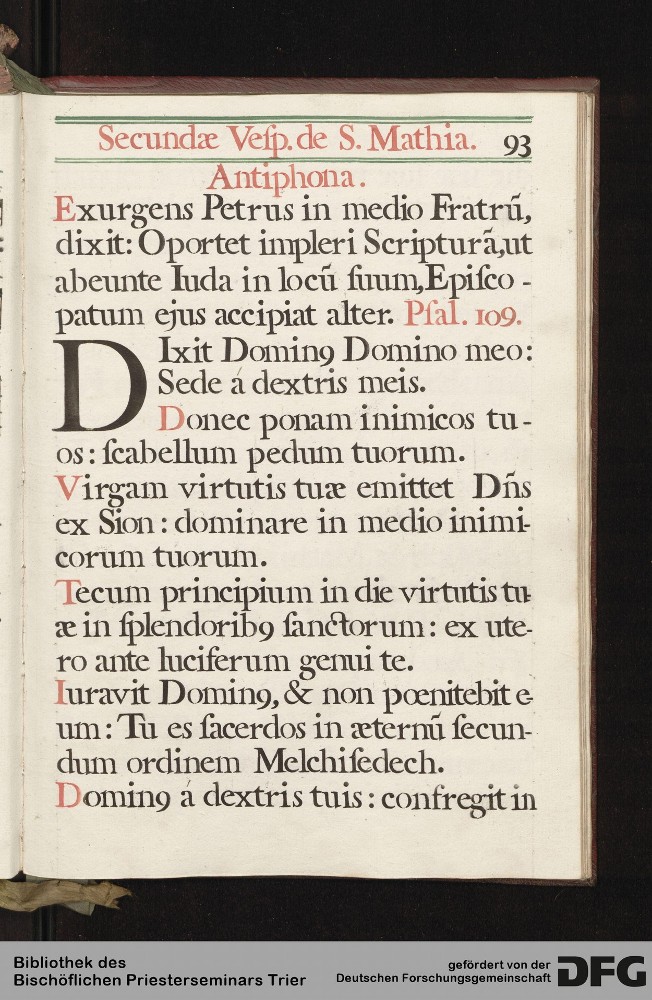 Secundæ Veſp. de S. Mathia. 93
Antiphona.
Exurgens Petrus in medio Fratrũ,
dixit: Oportet impleri Scripturã, ut
abeunte Iuda in locũ ſuum, Epiſco-
patum ejus accipiat alter. Pſal. 109.
DIxit Dominꝰ Domino meo:
Sede á dextris meis.
Donec ponam inimicos tu-
os: ſcabellum pedum tuorum.
Virgam virtutis tuæ emittet Dñs
ex Sion: dominare in medio inimi-
corum tuorum.
Tecum principium in die virtutis tu-
æ in ſplendoribꝰ ſanctorum: ex ute-
ro ante luciferum genui te.
Iuravit Dominꝰ, & non pœnitebit e-
um: Tu es ſacerdos in æternũ ſecun-
dum ordinem Melchiſedech.
Dominꝰ á dextris tuis: confregit in
Bibliothek des
Bischöflichen Priesterseminars Trier
gefördert von der
Deutschen Forschungsgemeinschaft
DFG